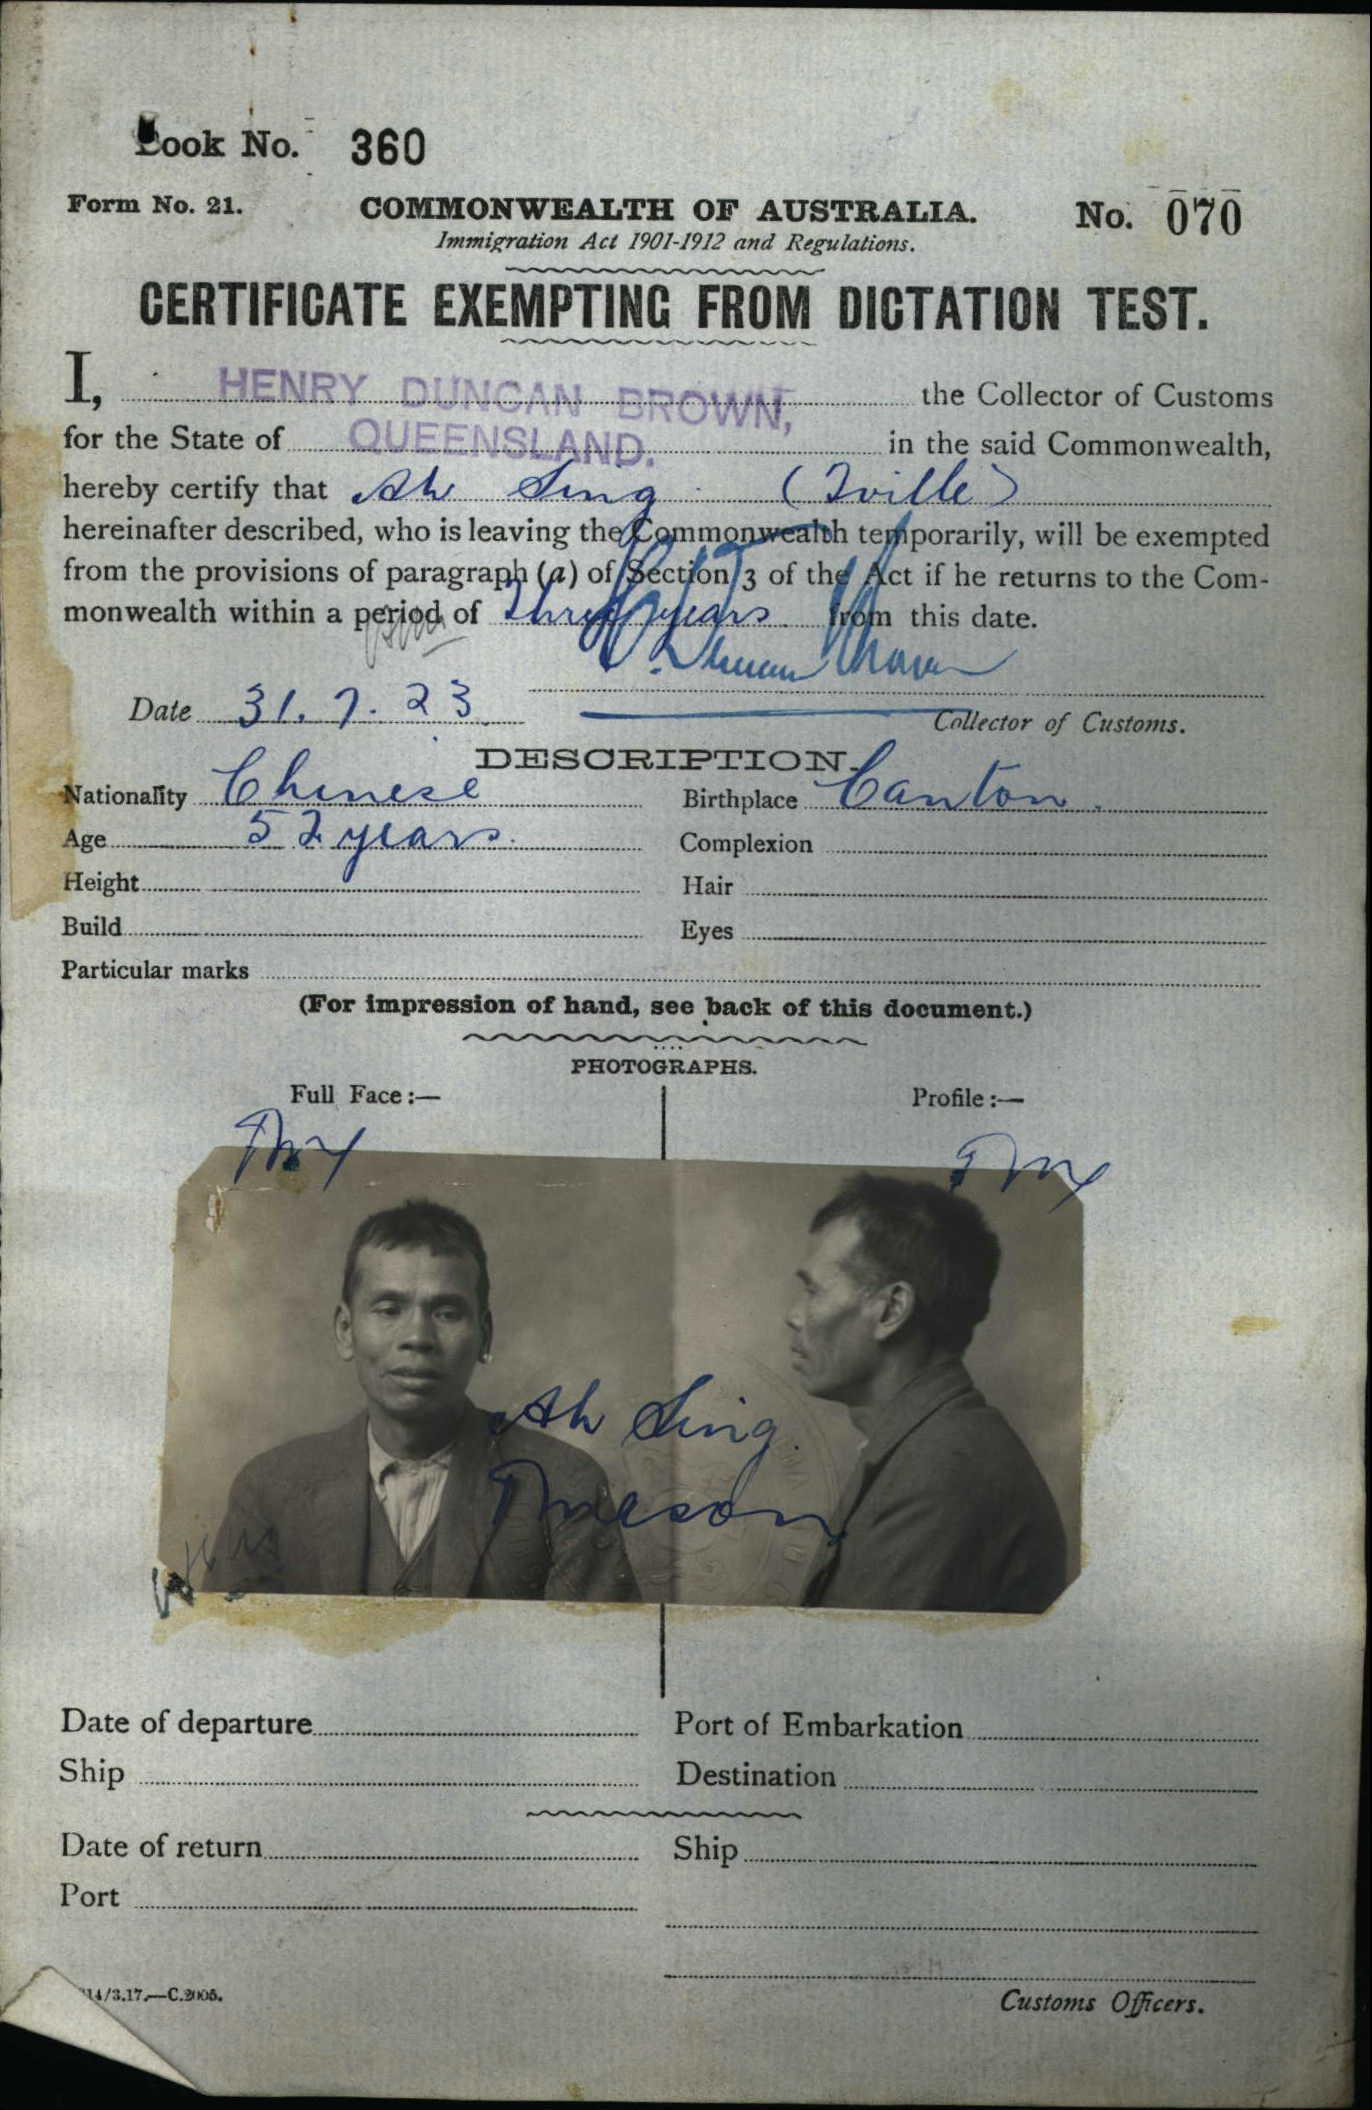 Book No. 360
Form No. 21.
COMMONWEALTH OF AUSTRALIA.
No. 070
Immigration Act 1901-1912 and Regulations.
CERTIFICATE EXEMPTING FROM DICTATION TEST.
I, HENRY DUNCAN BROWN, the Collector of Customs
for the State of QUEENSLAND. in the said Commonwealth,
hereby certify that Ah Sing (Tville)
hereinafter described, who is leaving the Commonwealth temporarily, will be exempted
from the provisions of paragraph (a) of Section 3 of the Act if he returns to the Com-
monwealth within a period of Three years from this date.
Date 31.7.23
Collector of Customs.
DESCRIPTION.
Nationality Chinese
Birthplace Canton.
Age 52 years.
Complexion
Height
Hair
Build
Eyes
Particular marks
(For impression of hand, see back of this document.)
PHOTOGRAPHS.
Full Face :—
Profile :—
Ah Sing.
Date of departure
Port of Embarkation
Ship
Destination
Date of return
Ship
Port
14/3.17.—C.2005.
Customs Officers.